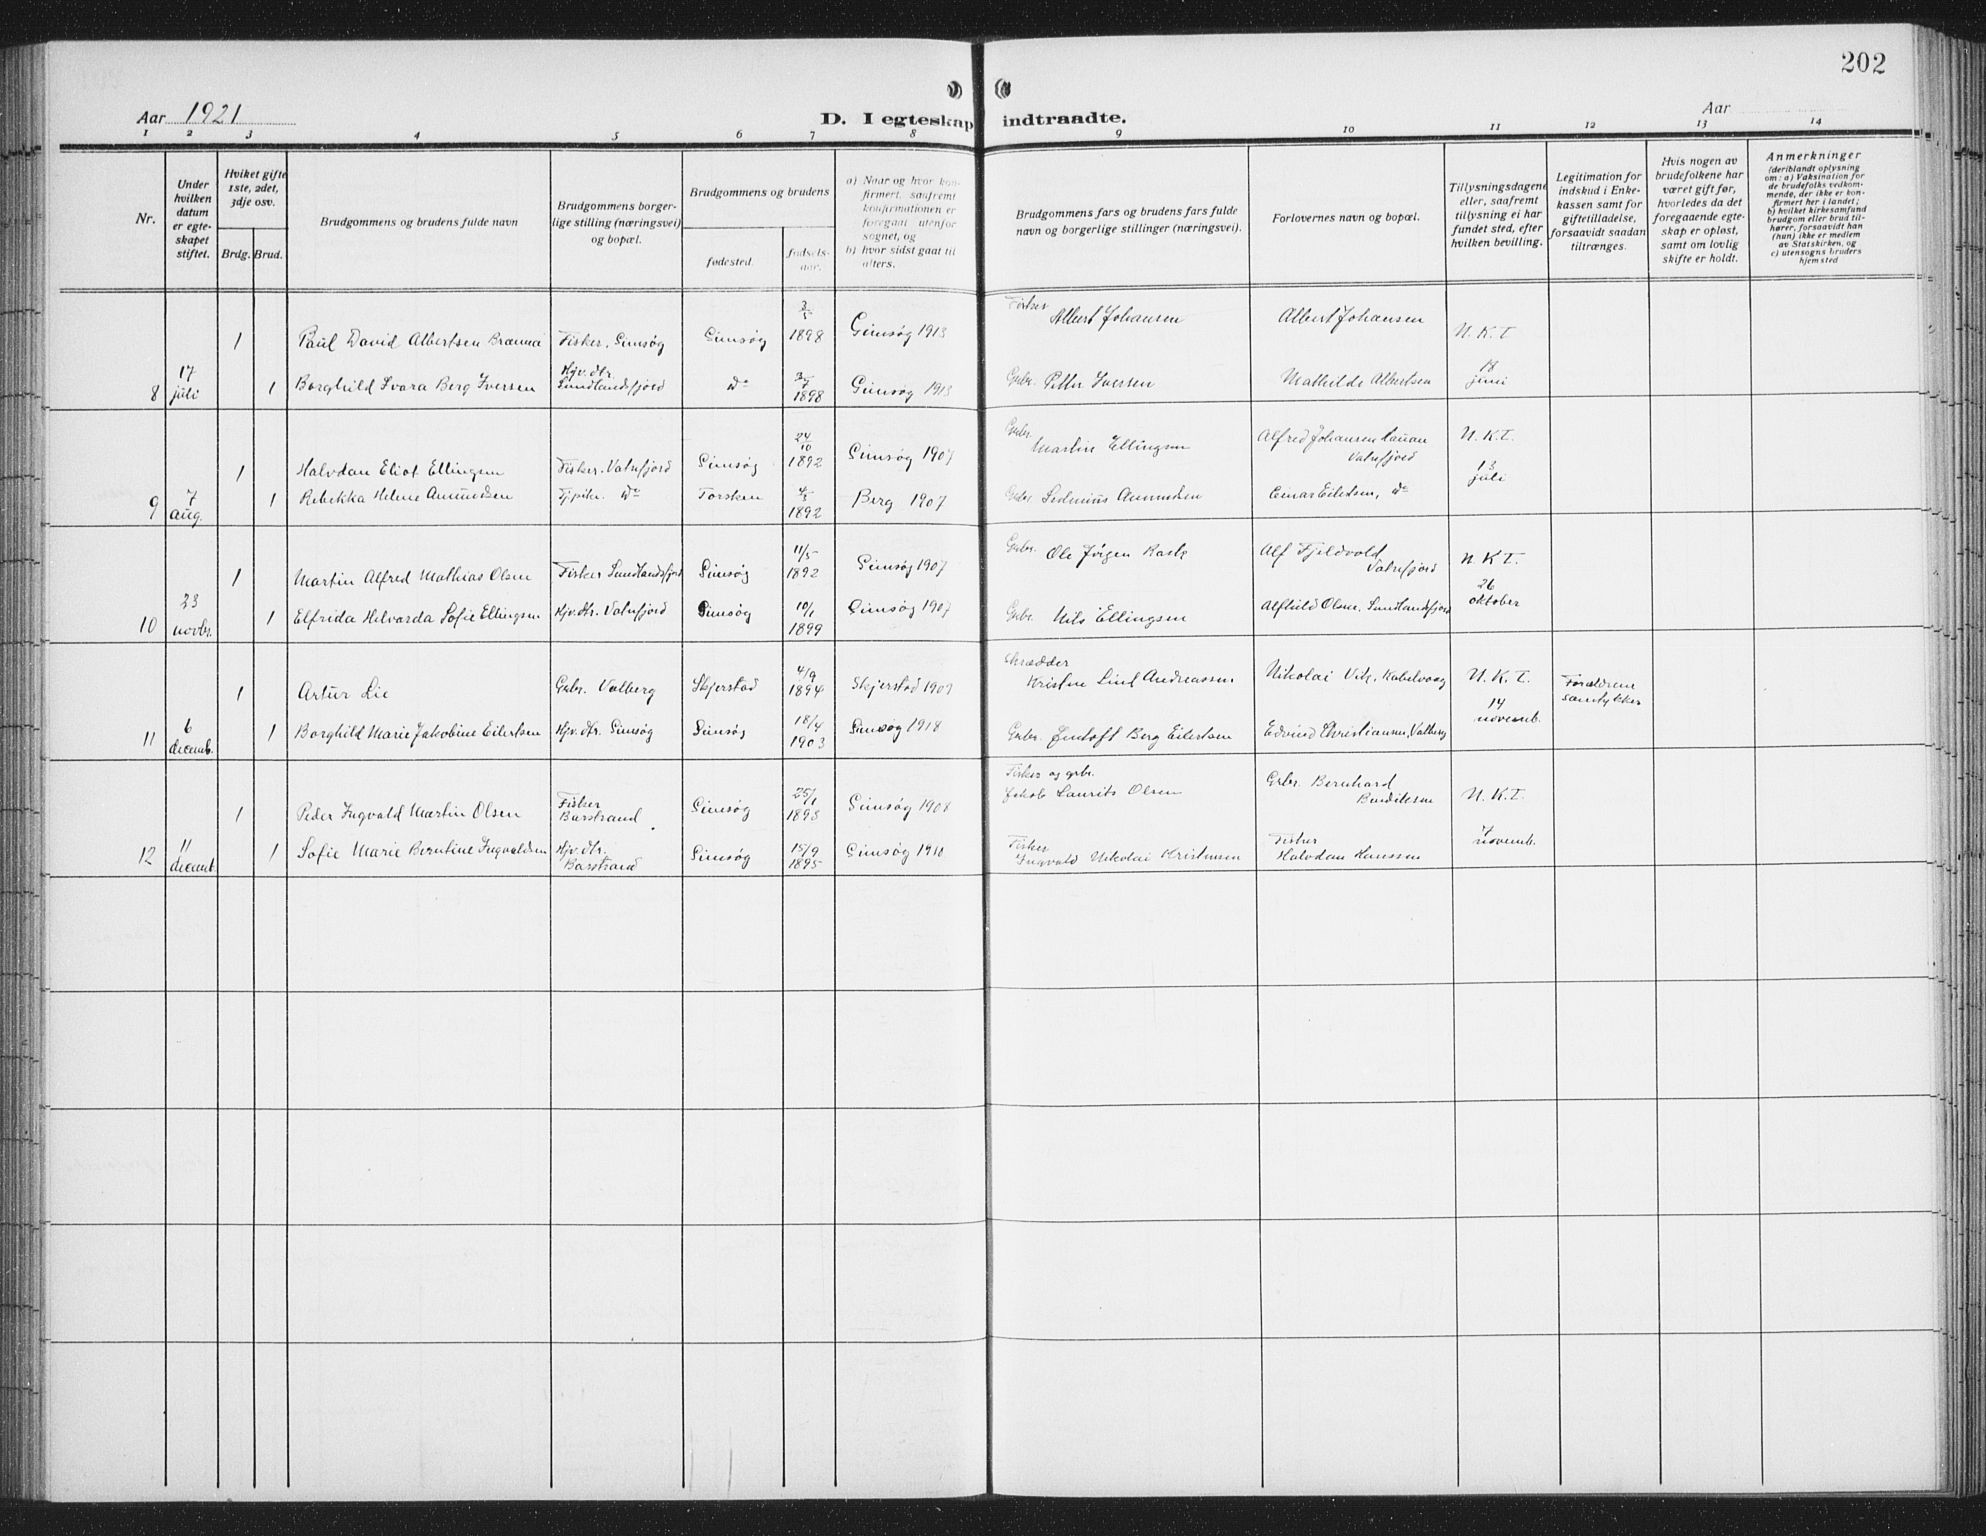 202
Aar 1921
D. I egteskap indtraadte.
Aar
1 2 3 4 5 6 7 8 9 10 11 12 13 14
Nr.
Under hvilken datum er egteskapet stiftet.
Hviket gifte 1ste, 2det, 3dje osv.
Brdg. Brud.
Brudgommens og brudens fulde navn
Brudgommens borgerlige stilling (næringsvei) og bopæl.
Brudgommens og brudens
fødested.
fødselsaar.
a) Naar og hvor konfirmert, saafremt konfirmationen er foregaat utenfor sognet, og
b) hvor sidst gaat til alters.
Brudgommens fars og brudens fars fulde navn og borgerlige stillinger (næringsvei).
Forlovernes navn og bopæl.
Tillysningsdagene eller, saafremt tillysning ei har fundet sted, efter hvilken bevilling.
Legitimation for indskud i Enkekassen samt for giftetilladelse, forsaavidt saadan tiltrænges.
Hvis nogen av brudefolkene har været gift før, hvorledes da det foregaaende egteskap er opløst, samt om lovlig skifte er holdt.
Anmerkninger
(deriblandt oplysning om: a) Vaksination for de brudefolks vedkommende, der ikke er konfirmert her i landet;
b) hvilket kirkesamfund brudgom eller brud tilhører, forsaavidt han (hun) ikke er medlem av Statskirken, og
c) utensogns bruders hjemsted
1 Paul David Albertsen Fisker, Gimsøg Gimsøg 3/5 1898 Gimsøg 1913 Fisker Albert Johansen Albert Johansen N.K.T.
8 17 juli 1 Borghild Svara Berg Iversen Hjv. dtr. Sundlandsfjord do 1898 Gimsøg 1913 Grbr. Petter Iversen Mathilde Albertsen 18 juni
1 Halvdan Eliot Ellingsen Fisker. Vatnfjord Gimsøg 24/10 1892 Gimsøg 1907 Grbr. Martin Ellingsen Alfred Johansen Vatnfjord N.K.T.
9 7 aug. 1 Rebekka Helene Amundsen do Torsken 4/3 1892 Berg 1907 Grbr. Sedenius Amundsen Einar Eilertsen, do 13 juli
1 Martin Alfred Mathias Olsen Fisker Sundlandsfjord Gimsøg 11/5 1892 Gimsøg 1907 Grbr. Ole Jørgen Rask Alf Fjeldvold Vatnfjord N.K.T.
10 23 novbr. 1 Elfrida Helvarda Sofie Ellingsen Hjv. dtr. Vatnfjord Gimsøg 10/1 1899 Gimsøg 1907 Grbr. Nils Ellingsen Alfhild Olsen, Sundlandsfjord 26 oktober
1 Artur Lie Grbr. Valberg Skjerstad 4/9 1894 Skjerstad 1909 Skrædder Kristen Lind Andreassen Nikolai Vik, Kabelvaag N.K.T. Forældrene samtykker
11 6 decemb. 1 Borghild Marie Jakobine Eilertsen Hjv. dtr. Gimsøg Gimsøg 18/4 1903 Gimsøg 1918 Grbr. Jentoft Berg Eilertsen Edvind Christiansen, Valberg 14 novemb.
1 Peder Ingvald Martin Olsen Fisker Barstrand Gimsøg 25/1 1893 Gimsøg 1908 Fisker og grbr. Jakob Laurits Olsen Grbr. Bernhard Benditsen N.K.T.
12 11 decemb. 1 Sofie Marie Berntine Ingvaldsen Hjv. dtr. Barstrand Gimsøg 15/9 1895 Gimsøg 1910 Fisker Ingvald Nikolai Kristensen Fisker Halvdan Hanssen 7 novemb.